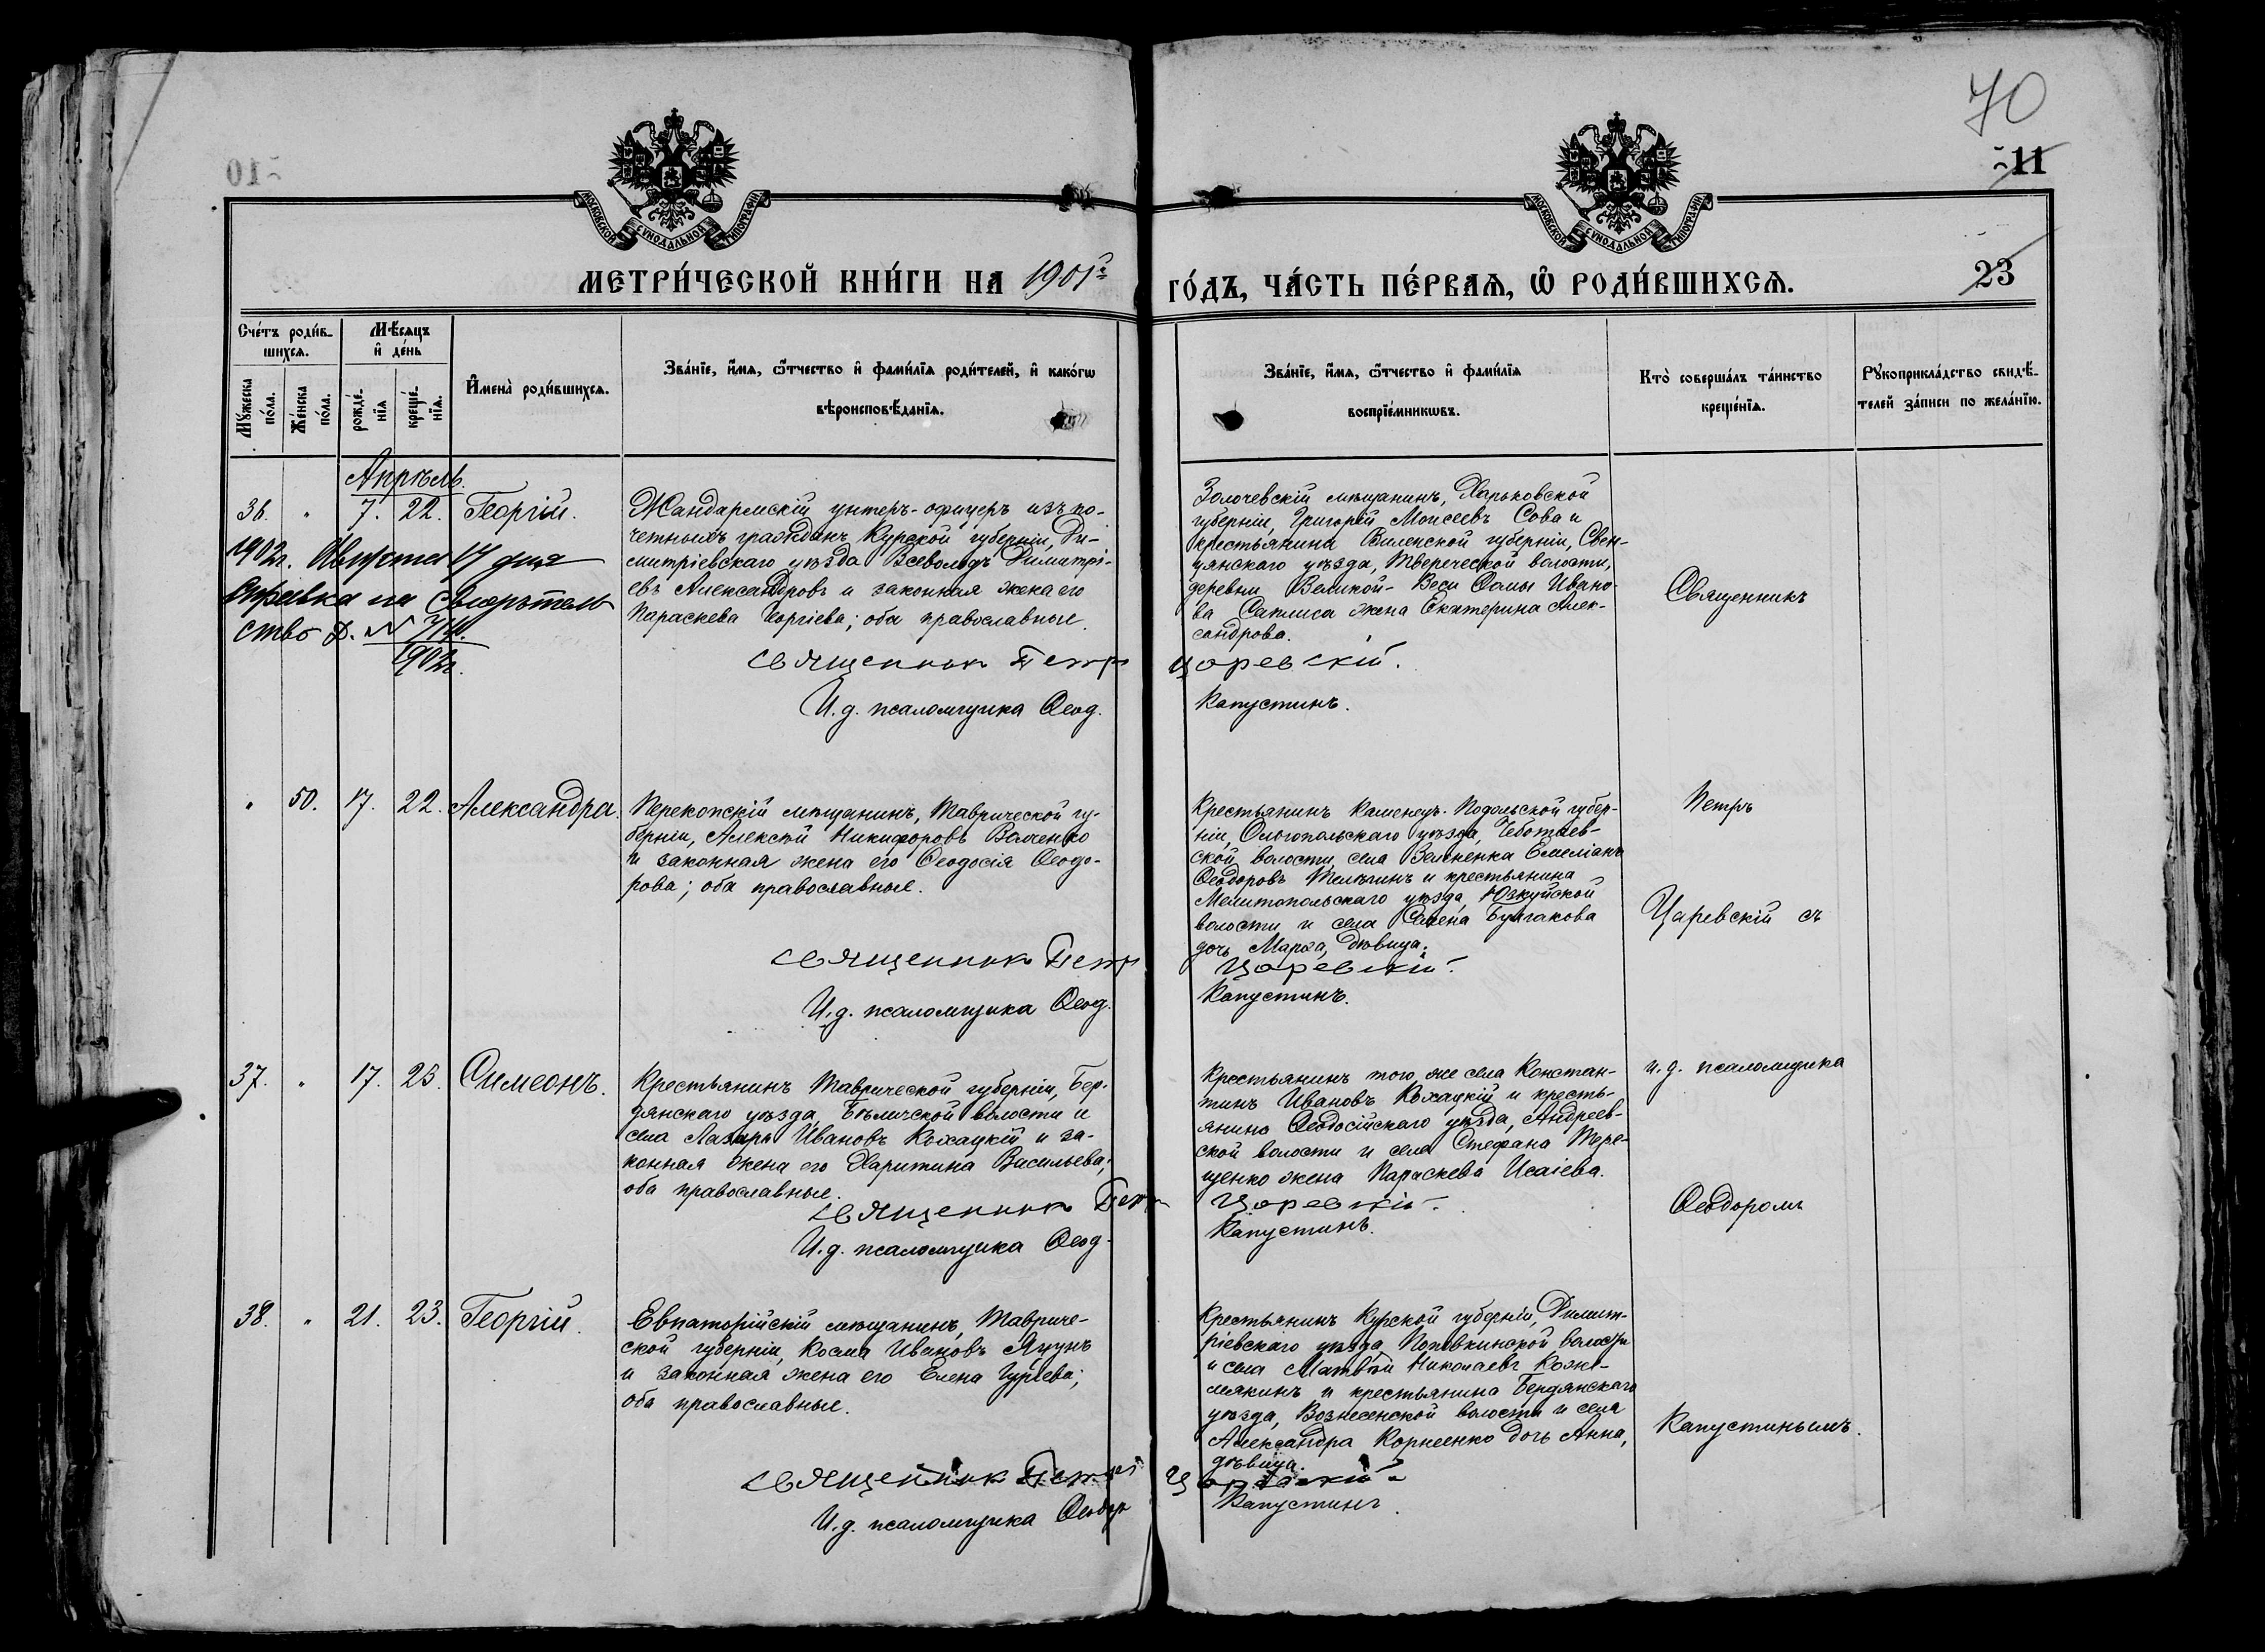 70
11
МОСКОВСКОЙ СѴНОДАЛЬНОЙ ТИПОГРАФІИ
МОСКОВСКОЙ СѴНОДАЛЬНОЙ ТИПОГРАФІИ
МЕТРИ́ЧЕСКОЙ КНИ́ГИ НА 1901й
ГО́ДЪ, ЧА́СТЬ ПЕ́РВАѦ, Ѽ РОДИ́ВШИХСѦ.
23
Сче́тъ роди́в-
шихсѧ.
Мꙋ́жеска по́ла.
Же́нска по́ла.
Мѣ́сѧцъ и҆ де́нь
рожде́-
нїѧ
креще́-
нїѧ.
И҆мена̀ роди́вшихсѧ.
Зва́нїе, и҆́мѧ, ѻ҆́тчество и҆ фами́лїѧ роди́телей, и҆ како́гѡ
вѣроисповѣ́данїѧ.
Зва́нїе, и҆́мѧ, ѻ҆́тчество и҆ фами́лїѧ
воспрїе́мникѡвъ.
Кто̀ соверша́лъ та́инство
креще́нїѧ.
Рꙋкоприкла́дство свидѣ́-
телей за́писи по жела́нїю.
Апрѣль.
36. " 7. 22. Георгій.
1902г. Августа 17 дня
Справка на свидѣтель
ство
1902г.
Жандармскій унтеръ-офицеръ изъ по-
четныхъ гражданъ Курской губерніи, Ди-
митріевскаго уѣзда Всеволодъ Димитрі-
евъ Александровъ и законная жена его
Параскева Георгіева; оба православные.
Священник Петр
И.д. псаломщика Ѳеод.
Золочевскій мѣщанинъ, Харьковской
губерніи, Григорій Моисеевъ Сова и
крестьянина Виленской губерніи, Свен-
цянскаго уѣзда, Тверечской волости,
деревни Великой-Веси Ѳомы Ивано-
ва жена Екатерина Алек-
сандрова.
Царевскій.
Капустинъ.
Священникъ
" 50. 17. 22. Александра.
Перекопскій мѣщанинъ, Таврической гу-
берніи, Алексѣй Никифоровъ Волченко
и законная жена его Ѳеодосія Ѳеодо-
рова; оба православные.
Священник Петр
И.д. псаломщика Ѳеод.
Крестьянинъ Каменецъ-Подольской губер-
ніи, Ольгопольскаго уѣзда,
ской волости, села Емеліанъ
Ѳеодоровъ и крестьянина
Мелитопольскаго уѣзда, Юзкуйской
волости и села Булгакова
дочь Марѳа, дѣвица.
Царевскій.
Капустинъ.
Петръ
Царевскій съ
37. " 17. 23. Симеонъ.
Крестьянинъ Таврической губерніи, Бер-
дянскаго уѣзда, волости и
села Лазарь Ивановъ Кохацкій и за-
конная жена его Харитина Васильева;
оба православные.
Священник Петр
И.д. псаломщика Ѳеод.
Крестьянинъ того же села Констан-
тинъ Ивановъ Кохацкій и кресть-
янина Ѳеодосійскаго уѣзда, Андреев-
ской волости и села Стефана Тере-
щенко жена Параскева Исаіева.
Царевскій.
Капустинъ.
и.д. псаломщика
Ѳеодоромъ
38. " 21. 23. Георгій.
Евпаторійскій мѣщанинъ, Тавриче-
ской губерніи, Косма Ивановъ Яцунъ
и законная жена его Елена Гуріева;
оба православные.
Священник Петр
И.д. псаломщика Ѳеодор
Крестьянинъ Курской губерніи, Димит-
ріевскаго уѣзда, волости
и села Матвѣй Николаевъ Коже-
мякинъ и крестьянина Бердянскаго
уѣзда, Вознесенской волости и села
Александра Корнеенко дочь Анна,
дѣвица.
Царевскій
Капустинъ.
Капустинымъ.